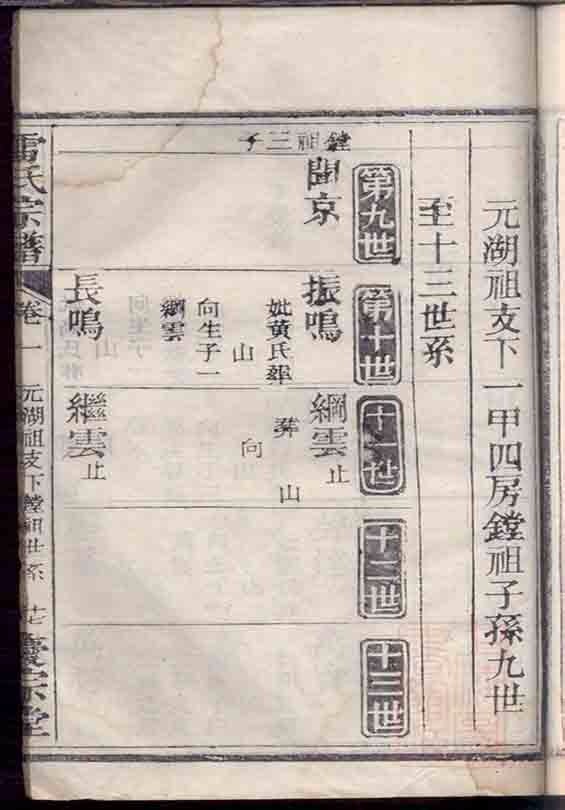 元湖祖支下一甲四房鏜祖子孫九世
至十三世系
第九世
第十世
十一世
十二世
十三世
鏜祖三子
聞京
振鳴
妣黃氏葬
山
向生子一
綱雲
長鳴
綱雲止
葬
山
向
繼雲止
雷氏宗譜
卷一
元湖祖支下鏜祖世系
慶宗堂